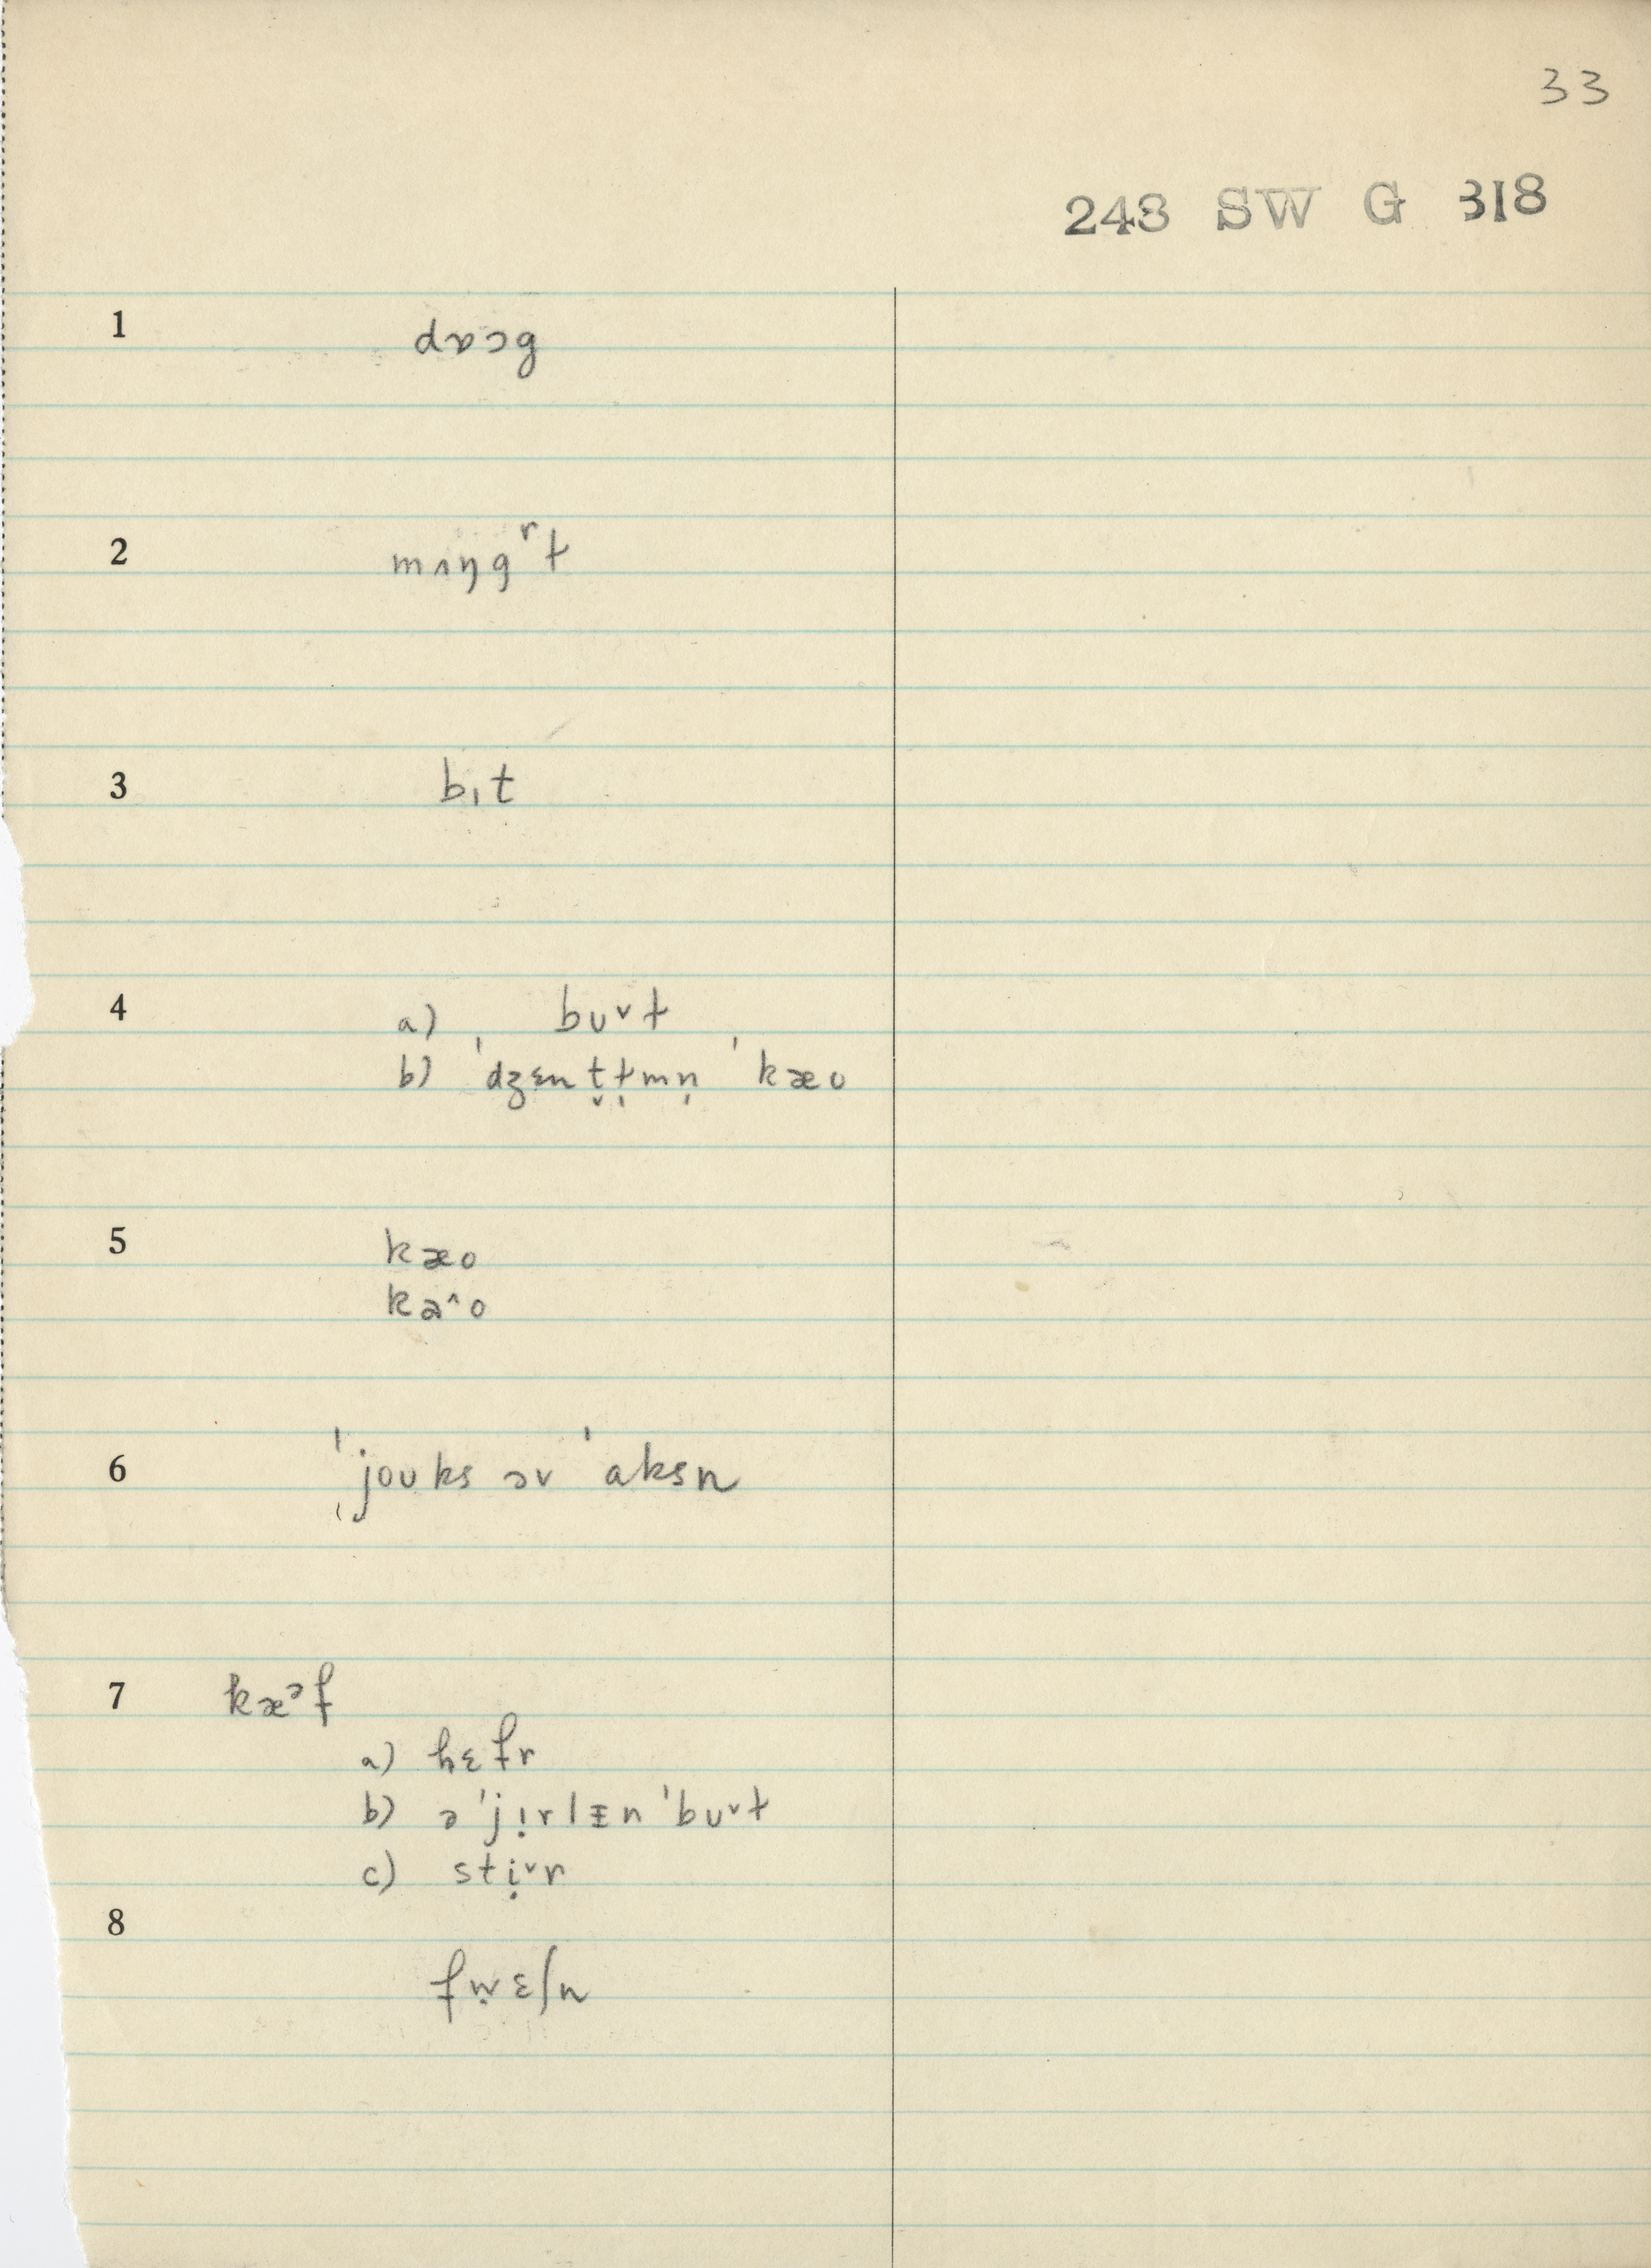 33
243 SW G 318
1 dɒɔg
2 mʌŋgʳɫ
3 bɪt
4 a) bʊ˅ɫ
b) ˈdʒɛnt̬ɫ̩mn̩ ˈkæʊ
5 kæo
ka^o
6 ˈjoʊks əv ˈaksn
7 kæᵊf
a) hɛfr
b) ə ˈjɪ̣rlɪn ˈbʊ˅ɫ
c) stị˅r
8 fẉɛʃn